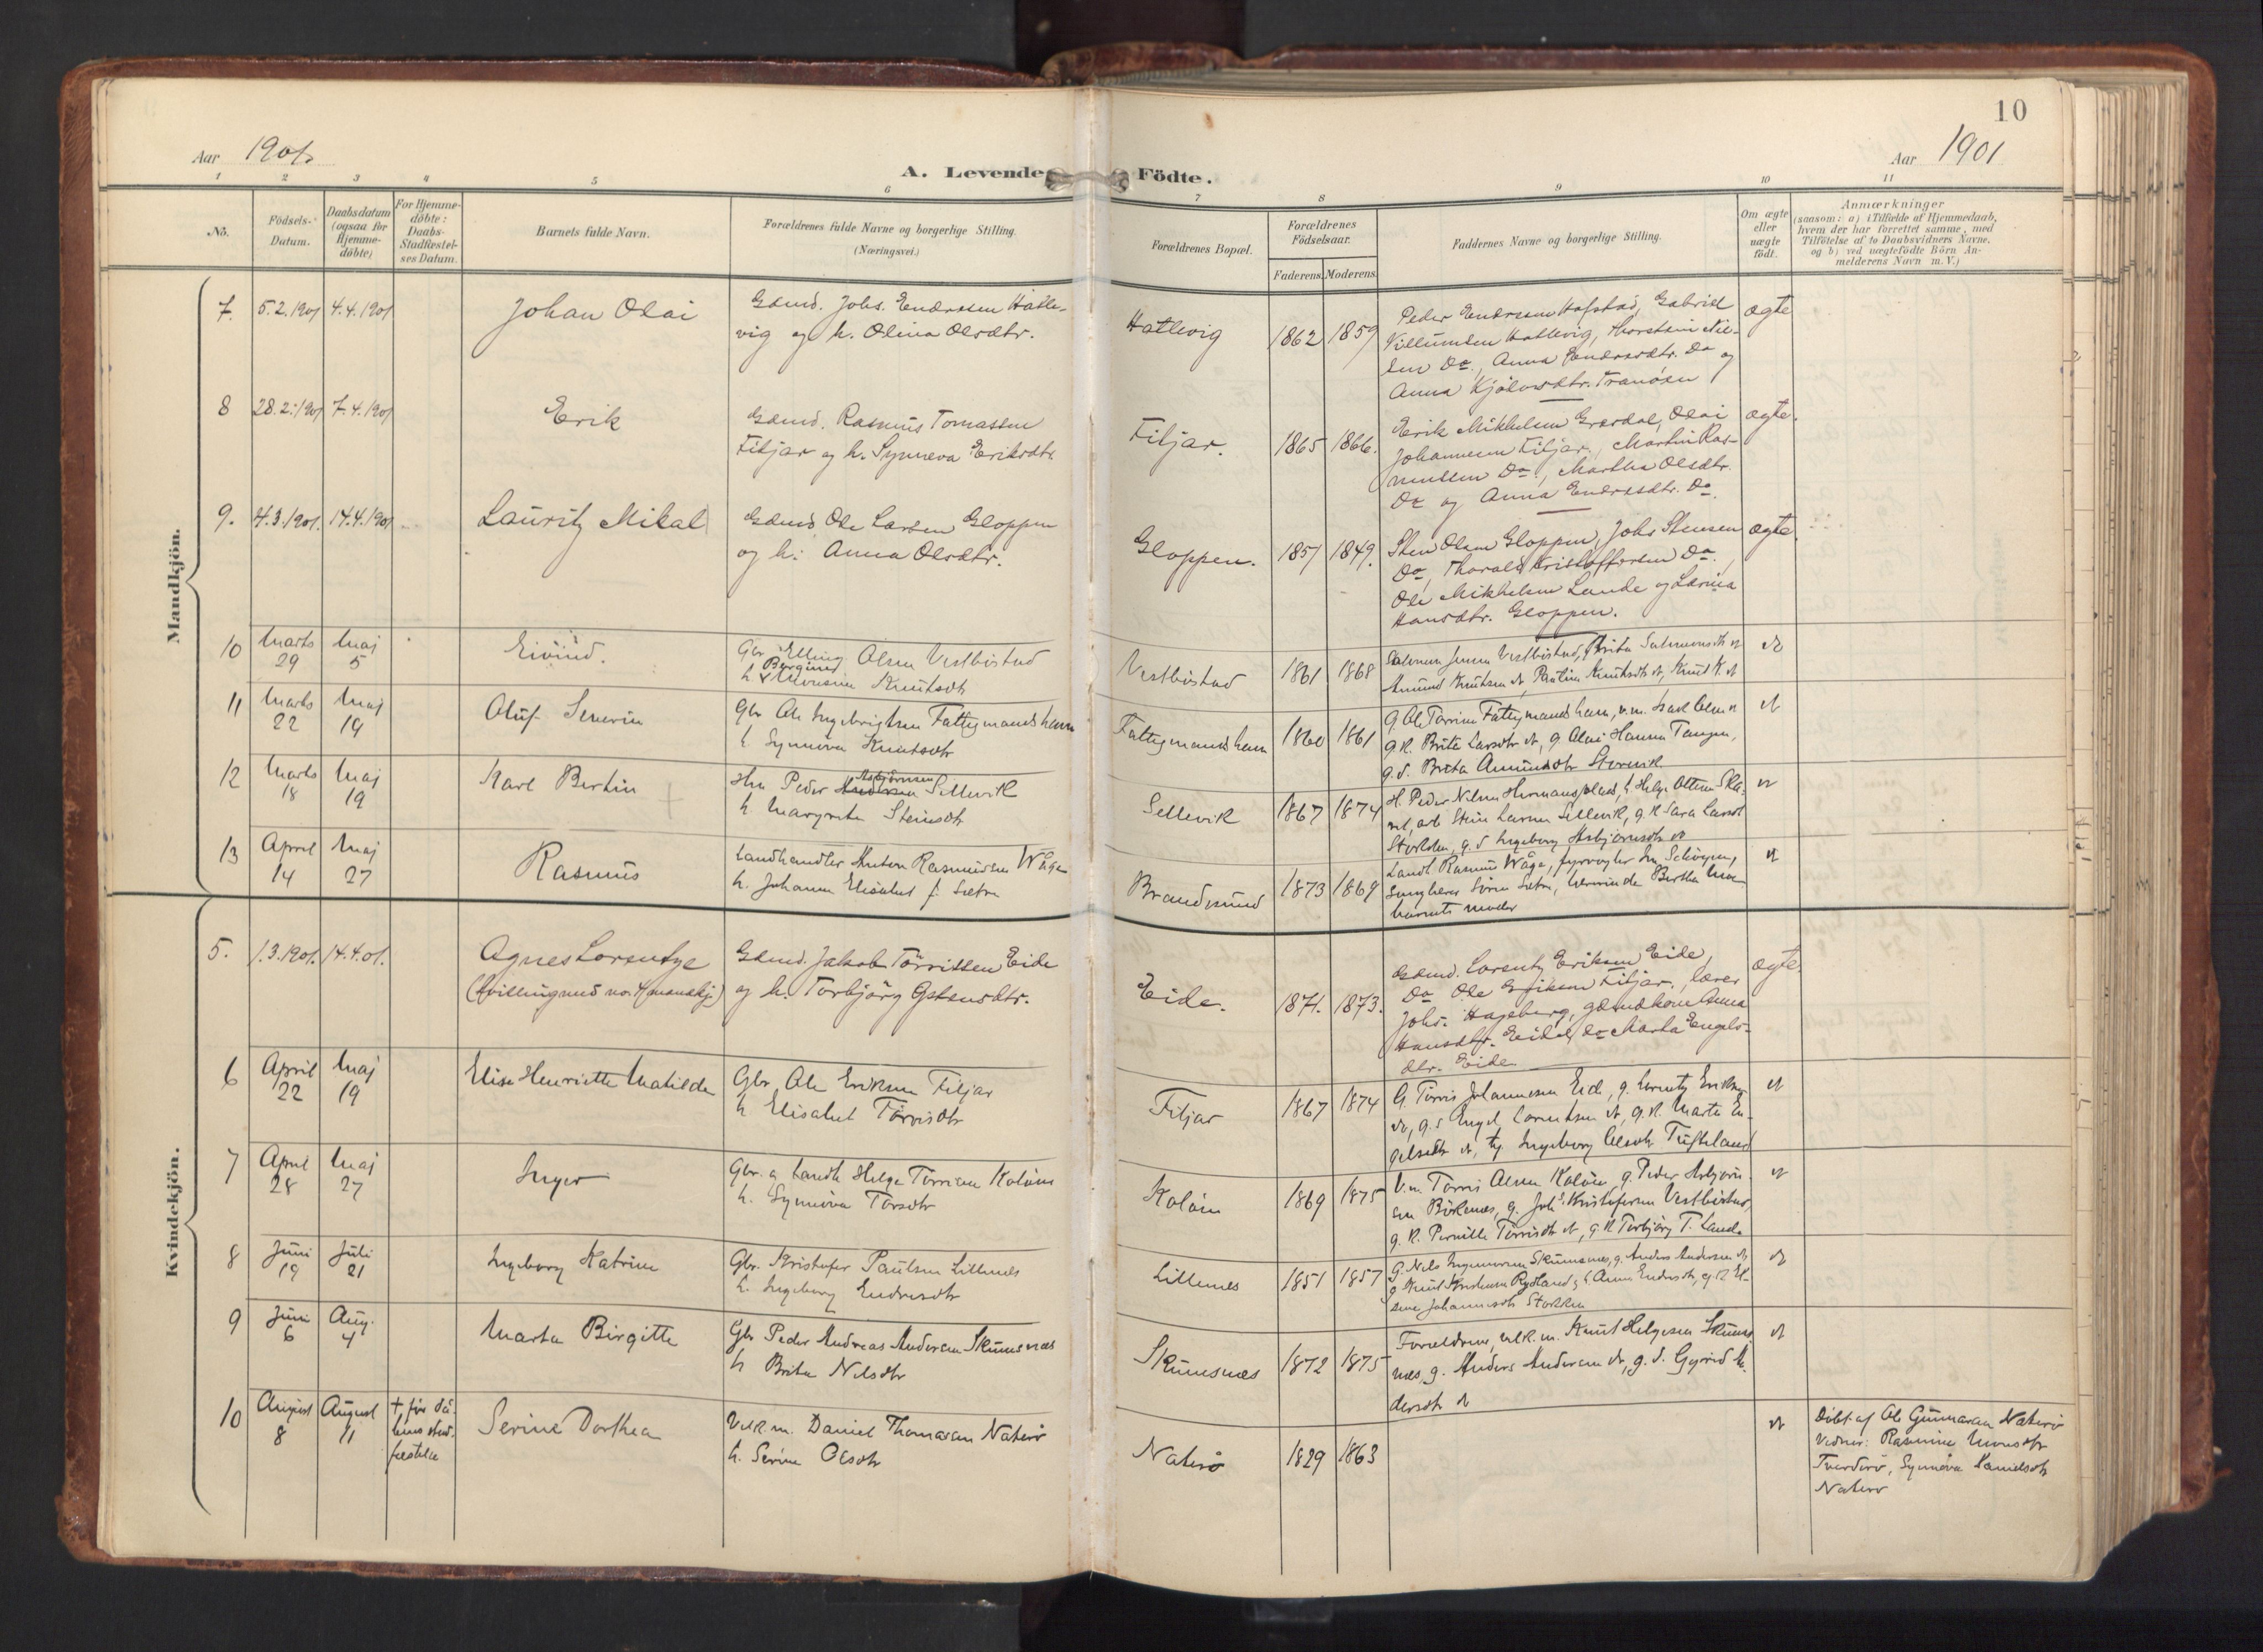 10
Aar 1901.
Aar 1901
A. Levende Födte.
1 2 3 4 5 6 7 8 9 10 11
No.
Födsels-
Datum.
Daabsdatum
(ogsaa for
Hjemme-
döbte)
For Hjemme-
döbte:
Daabs-
Stadfæstel-
ses Datum.
Barnets fulde Navn.
Forældrenes fulde Navne og borgerlige Stilling.
(Næringsvei.)
Forældrenes Bopæl.
Forældrenes
Födselsaar.
Faderens. Moderens.
Faddernes Navne og borgerlige Stilling.
Om ægte
eller
uægte
födt.
Anmærkninger
(saasom: a) i Tilfælde af Hjemmedaab,
hvem der har forrettet samme, med
Tilföielse af to Daabsvidners Navne.
og b) ved uægtefödte Börn An-
melderens Navn m. V.)
Mandkjön.
7. 5.2.1901 4.4.1901 Johan Olai
Gamd. Johs. Endresen Hatle-
vig og h. Olina Olsdtr.
Hatlevig 1862 1859
Peder Endresen Hofstad, Gabriel
Villumsen Hatlevig, Thorstein Nil-
sen Do., Anna Endresdtr. Do og
Anna Kjölavsdtr. Tranösen
ægte
8 28.2.1901 7.4.1901 Erik
Gamd. Rasmus Tomassen
Fitjar og h. Synneva Eriksdtr.
Fitjar. 1865 1866.
Erik Mikkelsen Grøsdal, Olai
Johannesen Fitjar, Martin Ras-
mussen Do., Martha Olsdtr.
Do og Anna Endresdtr. Do.
ægte.
9. 4.3.1901. 14.4.1901 Lauritz Mikal
Gamd. Ole Larsen Gloppen
og h. Anna Olsdtr.
Gloppen. 1857 1849.
Sten Olsen Gloppen, Johs Stensen
Do, Thorald Kristoffersen Do.
Ole Mikkelsen Lande og Larina
Hansdtr. Gloppen.
ægte.
10 Marts 29 Maj 5 Eivind.
Gbr Elling Olsen Vestbøstad
h. Bergine Monsine Knutsdtr
Vestbøstad 1861 1868
Salomon Jensen Vestbøstad, Brita Salmonsdtr dt
Amund Knutsen dt, Pauline Knutsdtr dt, Knut K. dt
dt
11 Marts 22 Maj 19 Oluf Severin
Gbr Ole Ingebrigtsen Fattigmandshavn
h. Synnøva Knutsdtr
Fattigmandshavn 1860 1861
g. Ole Torrisen Fattigmandshavn, u.m. Isak Olsen dt
g.k. Brita Larsdtr dt, g. Olai Hansen Tangen,
g.d. Brita Amundsdtr Storevik
dt
12 Marts 18 Maj 19 Karl Bertin
Hm Peder Andersen Asbjörnsen Sellevik
h. Margreta Steinsdtr
Sellevik 1867 1874
H. Peder Nilsen Hermansplads, h Helge Ottesen Ska-
arb Stein Larsen Sellevik, g.k Sara Larsdt
g.d Ingeborg Asbjörnsdtr dt
dt
13 April 14 Maj 27 Rasmus
Landhandler Anton Rasmussen Wåge
h. Johanne Elisabet f. Sætre
Brandesund 1873 1869
Landh. Rasmus Wåge, fyrvogter
ungkarl Sören Sætre, Bertha
barnets moder
dt
Kvindekjön.
5. 1.3.1901. 14.4.01. Agnes Lorentze
(tvilling med no. 4 mandkj.)
Gamd. Jakob Törrissen Eide
og h. Torbjörg Gstensdtr.
Eide. 1871. 1873.
Gamd. Lorentz Eriksen Eide,
Do Ole Eriksen Fitjar, lærer
Johs. Hageberg, gamdkone Anna
Hansdtr. Eide, Do Marta Engels-
dtr. Eide
ægte.
6 April 22 Maj 19 Elise Henriette Matilde
Gbr Ole Eriksen Fitjar
h Elisabet Törrisdtr
Fitjar 1867 1874
G. Törris Johannesen Eid, g. Lorentz Eriksen
dt, g.s Engel Lorentsen dt, g.k. Marta En-
gelsdtr dt, tj. Ingeborg Olsdtr Tufteland
dt
7 April 28 Maj 27 Inger
Gbr. og Landh Helge Torrisen Koløen
h. Synnøva Torsdtr
Koløen 1869 1875
U.m. Torris Olsen Koløen, g. Peder Asbjørn-
sen Birkenes, g. Johs. Kristofersen Vestbøstad,
g.k. Pernille Torrisdtr dt, g.k Torbjörg T. Lande
dt
8 Juni 19 Juli 21 Ingeborg Katrine
Gbr. Kristofer Paulsen Lillenes
h. Ingeborg Endresdtr
Lillenes 1851 1857
G. Nils Ingemarsen Skumsnes, g. Anders Andersen dt
g. Knut Kristensen Rydland, g.k Anna Endresdtr, g.k El-
sine Johannesdtr Stokken
dt
9 Juni 6 Aug. 4 Marta Birgitte
Gbr Peder Andreas Andersen Skumsnes
h Brita Nilsdtr
Skumsnes 1872 1875
Forældrene, ulk.m. Knut Helgesen Skums-
nes, g. Anders Andersen dt, g.d. Gyrid An-
dersdtr dt
dt
10 August 8 August 11 + för då-
bens stad-
festelse
Serine Dorthea
Ulk.m. Daniel Thomassen Naterö
h. Serine Olsdtr
Naterö 1829 1863
dt
Döbt af Ole Gunnarsen Naterö
Vidner: Rasmine Monsdtr
Tverderö, Synnøva Danielsdtr
Naterö